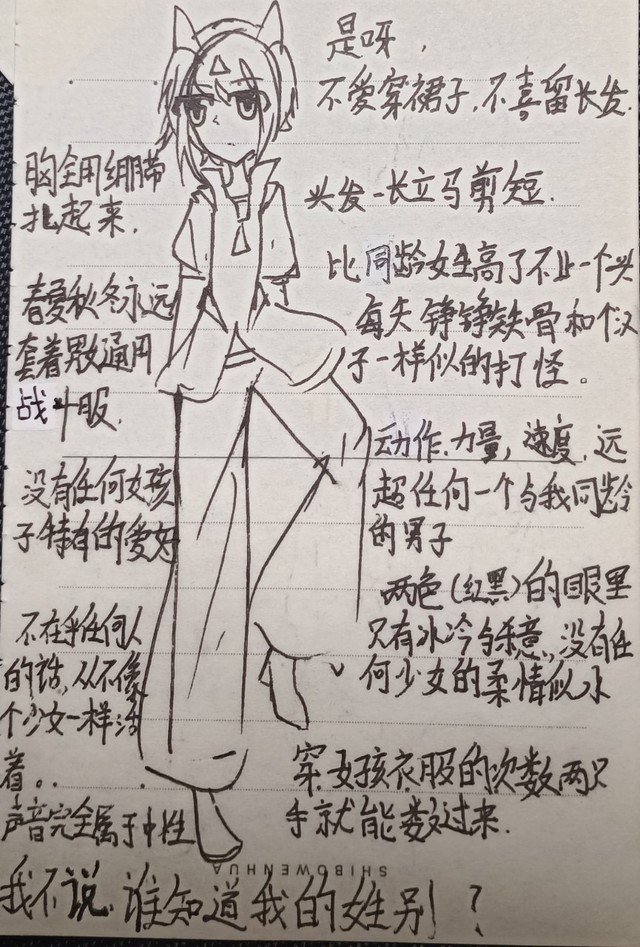 是呀,
不爱穿裙子,不喜留长发.
头发一长立马剪短.
比同龄女生高了不止一个头
每天铮铮铁骨和个汉
子一样似的打怪。
动作.力量,速度,远
超任何一个与我同龄
的男子
两色(红黑)的眼里
只有冰冷与杀意,没有任
何少女的柔情似水
穿女孩衣服的次数两只
手就能数过来.
胸全用绷带
扎起来.
春夏秋冬永远
套着男女通用
战斗服.
没有任何女孩
子特有的爱好
不在乎任何人
的话,从不像
个少女一样活
着。.
声音完全属于中性
SHIBOWENHUA
我不说谁知道我的姓别?